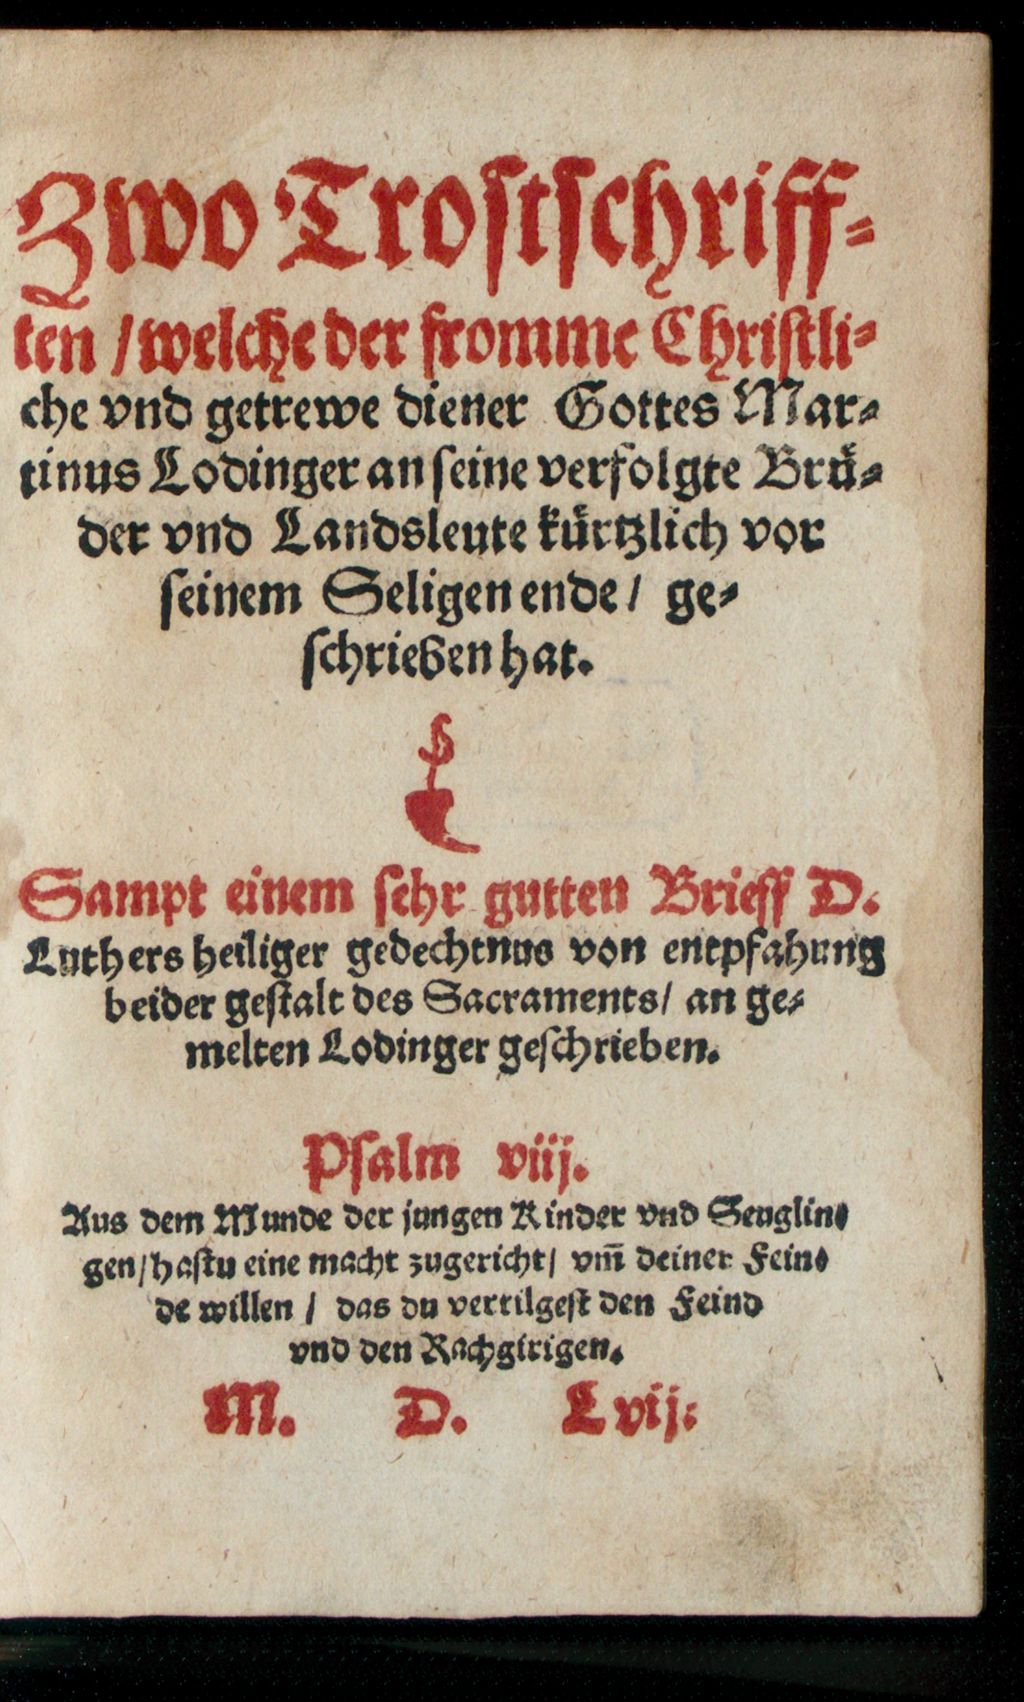 Zwo Trostschriff⸗
ten / welche der fromme Christli⸗
che vnd getrewe diener Gottes Mar⸗
tinus Lodinger an seine verfolgte Brü⸗
der vnd Landsleute kürtzlich vor
seinem Seligen ende / ge⸗
schrieben hat.
Sampt einem sehr gutten Brieff D.
Luthers heiliger gedechtnus von entpfahung
beider gestalt des Sacraments / an ge⸗
melten Lodinger geschrieben.
Psalm viij.
Aus dem Munde der jungen Kinder vnd Seuglin⸗
gen / hastu eine macht zugericht / vm̃ deiner Fein⸗
de willen / das du vertilgest den Feind
vnd den Rachgirigen.
M. D. Lvij.